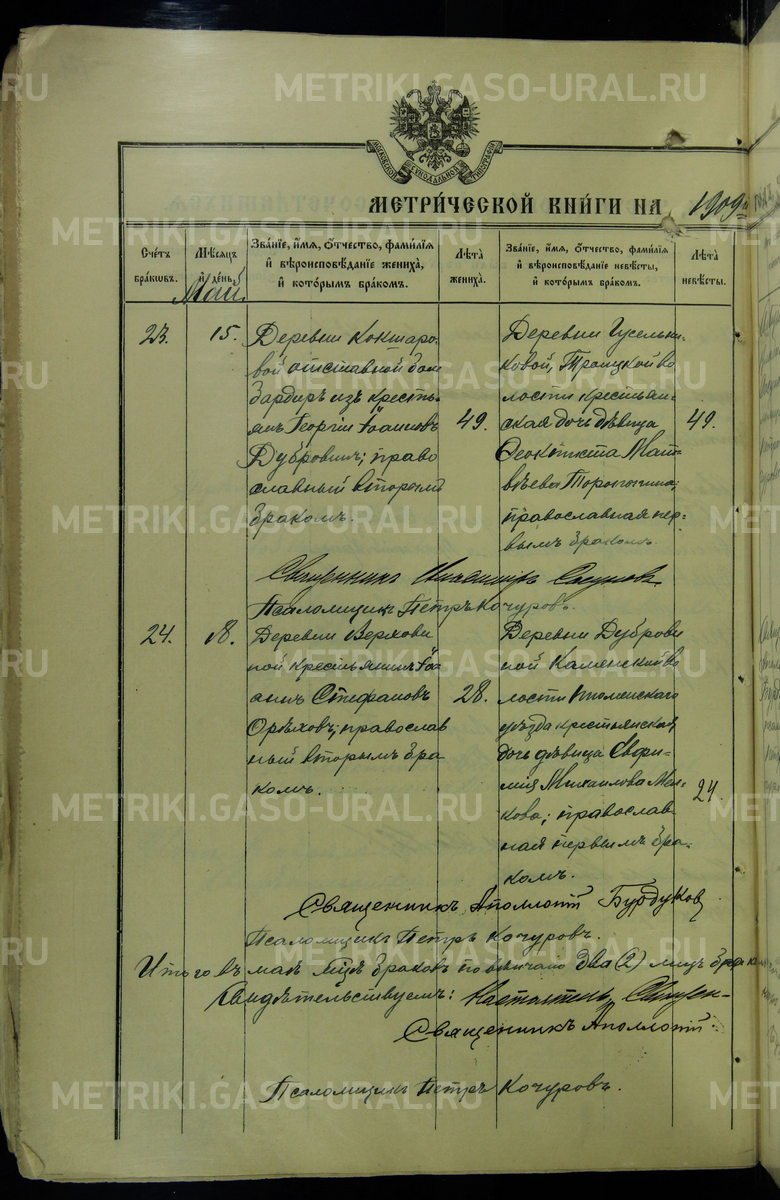 METRIKI.GASO-URAL.RU
МОСКОВСКОЙ СѴНОДАЛЬНОЙ ТИПОГРАФІИ
МЕТРИ́ЧЕСКОЙ КНИ́ГИ НА 1909
Сче́тъ бра́кѡвъ.
Мѣ́сяцъ и де́нь.
Зва́нїе, и́мя, о́тчество, фами́лїя и вѣроисповѣ́данїе жениха̀, и кото́рымъ бра́комъ.
Лѣта̀ жениха̀.
Зва́нїе, и́мя, о́тчество, фами́лїя и вѣроисповѣ́данїе невѣ́сты, и кото́рымъ бра́комъ.
Лѣта̀ невѣ́сты.
Май
23.
15.
Деревни Кокшаро-
вой отставной бом
бардиръ изъ кресть-
янъ Георгій Іоанновъ
Дубровинъ; право
славный вторымъ
бракомъ.
49.
Деревни Гусельни
ковой, Троицкой во
лости крестьян-
ская дочь дѣвица
Ѳеоктиста Мат-
вѣева Торопчина;
православная пер-
вымъ бракомъ.
49.
Священникъ
Псаломщикъ Петръ Кочуровъ.
24.
18.
Деревни Верхови
ной крестьянинъ Іо-
аннъ Стефановъ
Орѣховъ; православ
ный вторымъ бра
комъ.
28.
Деревни Дуброви
ной Каменской во
лости Тюменскаго
уѣзда крестьянская
дочь дѣвица Евфи-
мія Михаилова
православ
ная первымъ бра-
комъ.
24.
Священникъ Аполлонъ Бурдуковъ
Псаломщикъ Петръ Кочуровъ.
Итого въ маѣ м-цѣ браковъ повѣнчано два (2) лицъ
Свидѣтельствуемъ: Настоятель, Священ-
Священникъ Аполлонъ
Псаломщикъ Петръ Кочуровъ.